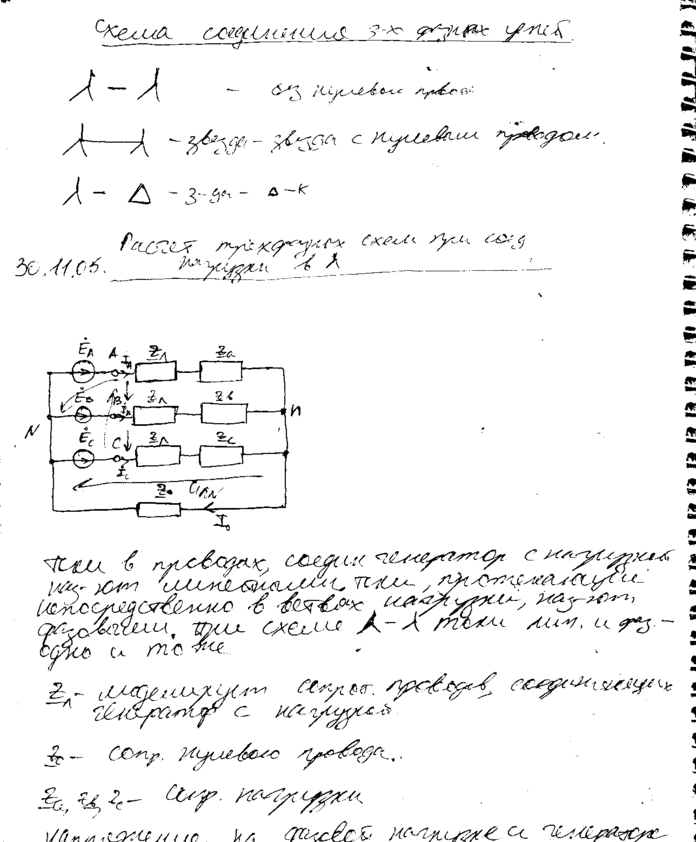 Схема соединения 3-х фазных цепей.
λ – λ – без нулевого провода
λ — λ – звезда – звезда с нулевым проводом.
λ – Δ – з-да – Δ-к
Расчет трехфазных схем при соед
30.11.05. нагрузки в λ
ĖA A IA ZЛ Za
ĖB B ZЛ Zb
N n
ĖC C ZЛ Zc
IC
UnN
Z0
I0
Токи в проводах, соедин генератор с нагрузкой
наз-ют линейными токи, протекающие
непосредственно в ветвях нагрузки, наз-ют
фазовыми. При схеме λ-λ токи лин. и фаз. –
одно и то же
ZЛ – моделирует сопрот. проводов, соединяющих
генератор с нагрузкой
Z0 – сопр. нулевого провода.
Za, Zb, Zc – сопр. нагрузки
напряжение на фазовой нагрузке и генераторе